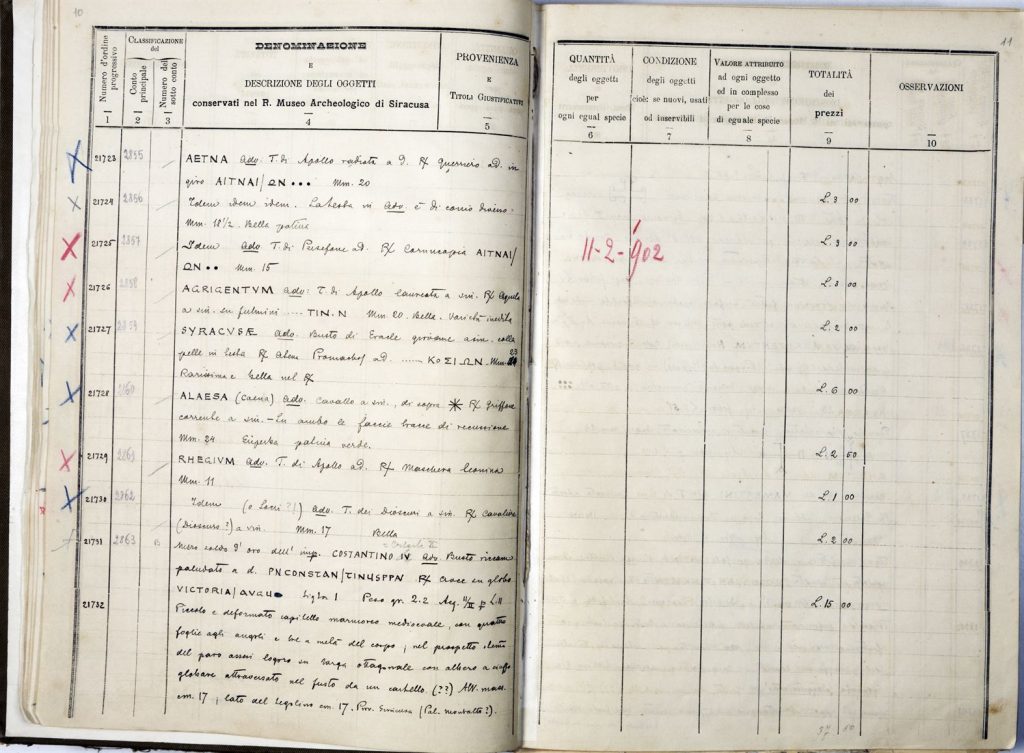 10
Numero d'ordine progressivo
CLASSIFICAZIONE del
Conto principale
Numero del sotto conto
DENOMINAZIONE
E
DESCRIZIONE DEGLI OGGETTI
conservati nel R. Museo Archeologico di Siracusa
PROVENIENZA
E
TITOLI GIUSTIFICATIVI
1 2 3 4 5
21723 2855 AETNA adv. T. di Apollo radiata a d. R/ guerriero a d. in
giro AITNAI/ΩN ••• Mm. 20
21724 2856 Idem idem idem. La testa in adv. è di conio diverso.
Mm. 18 1/2. Bella patina
21725 2857 Idem adv. T. di Persefone a d. R/ Cornucopia AITNAI/
ΩN •• Mm. 15
21726 2858 AGRIGENTVM adv: T. di Apollo laureata a sin. R/ Aquila
a sin. su fulmini ..... TIN. N Mm. 20. Bella. Varietà inedita
21727 2859 SYRACVSÆ adv. Busto di Eracle giovane a sin. colla
pelle in testa R/ Atena Promachos a d. ...... KOΣIΩN. Mm. 23
Rarissima e bella nel R/
21728 2860 ALAESA (Casia) adv. Cavallo a sin., di sopra ✳ R/ Griffone
corrente a sin. – In ambo le faccie tracce di recussione
Mm. 24 Superba patina verde.
21729 2861 RHEGIVM adv. T. di Apollo a d. R/ Maschera leonina
Mm. 11
21730 2862 Idem (o Locri ?!) adv. T. dei Dioscuri a sin. R/ Cavaliere
(Dioscuro ?) a sin. Mm. 17 Bella
21731 2863 B Mezzo soldo d'oro dell' imp. COSTANTINO IV adv. Busto
paludato a d. PNCONSTAN/TINUSPPN R/ Croce su globo
VICTORIA/AVGU• Peso gr. 2.2
21732 Piccolo e deformato capitello marmoreo medioevale, con quattro
foglie agli angoli e tre a metà del corpo; nel prospetto
del pari assai logoro su targa ottagonale con albero a
globare attraversato nel fusto da un cartello. (??) Alt. mass.
cm. 17; lato del cm. 17. Prov. Siracusa (Pal. Montalto ?).
11
QUANTITÀ
degli oggetti
per
ogni egual specie
6
CONDIZIONE
degli oggetti
cioè: se nuovi, usati
od inservibili
7
VALORE ATTRIBUITO
ad ogni oggetto
od in complesso
per le cose
di eguale specie
8
TOTALITÀ
dei
prezzi
9
OSSERVAZIONI
10
11-2-902
L. 3 00
L. 3 00
L. 3 00
L. 2 00
L. 6 00
L. 2 50
L. 1 00
L. 2 00
L. 15 00
37 50